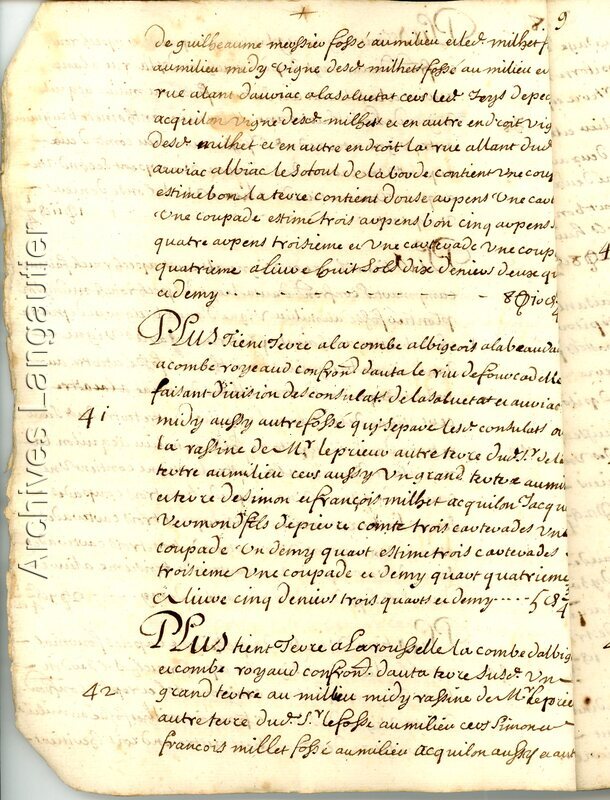 9
de guilheaume meyssieu fossé au milieu et led. milhet f
au milieu midy vigne desd. milhets fossé au milieu et
rue alant dauriac a la salvetat cers led. de pe
acquilon vigne desd. milhet et en autre endroit vig
desd. milhet et en autre endroit la rue allant dud.
auriac albiac le sotoul de la borde contient une coup
estime bon la terre contient douse arpens une cart
une coupade estime trois arpens bon cinq arpens
quatre arpens troisieme et une carterade une coup
quatrieme a livre huit sols dix deniers deux qu
et demy
PLus Tient Terre a la combe albigeois a la beaud
a combe royeaud confrond. dauta le riu de fourcadelle
faisant Division des consulats de la salvetat et auriac
41
midy aussy autre fossé qui separe lesd. consulats
la rassine de Mr. le prieur autre terre dud. Sr. de la
tertre au milieu cers aussy un grand tertre au mi
et terre de simon et françois milhet acquilon Jacqu
Vermond fils de pierre comte trois carterades une
coupade un demy quart estime trois carterades
troisieme une coupade et demy quart quatrieme
a livre cinq deniers trois quarts et demy
PLus tient Terre a La rousselle la combe dalbig
et combe royaud confrond. dauta terre susd. un
42
grand tertre au milieu midy rassine de Mr. Le prie
autre terre dud. Sr. le fosse au milieu cers Simon et
françois millet fossé au milieu acquilon aussy et aut
Archives Langautier